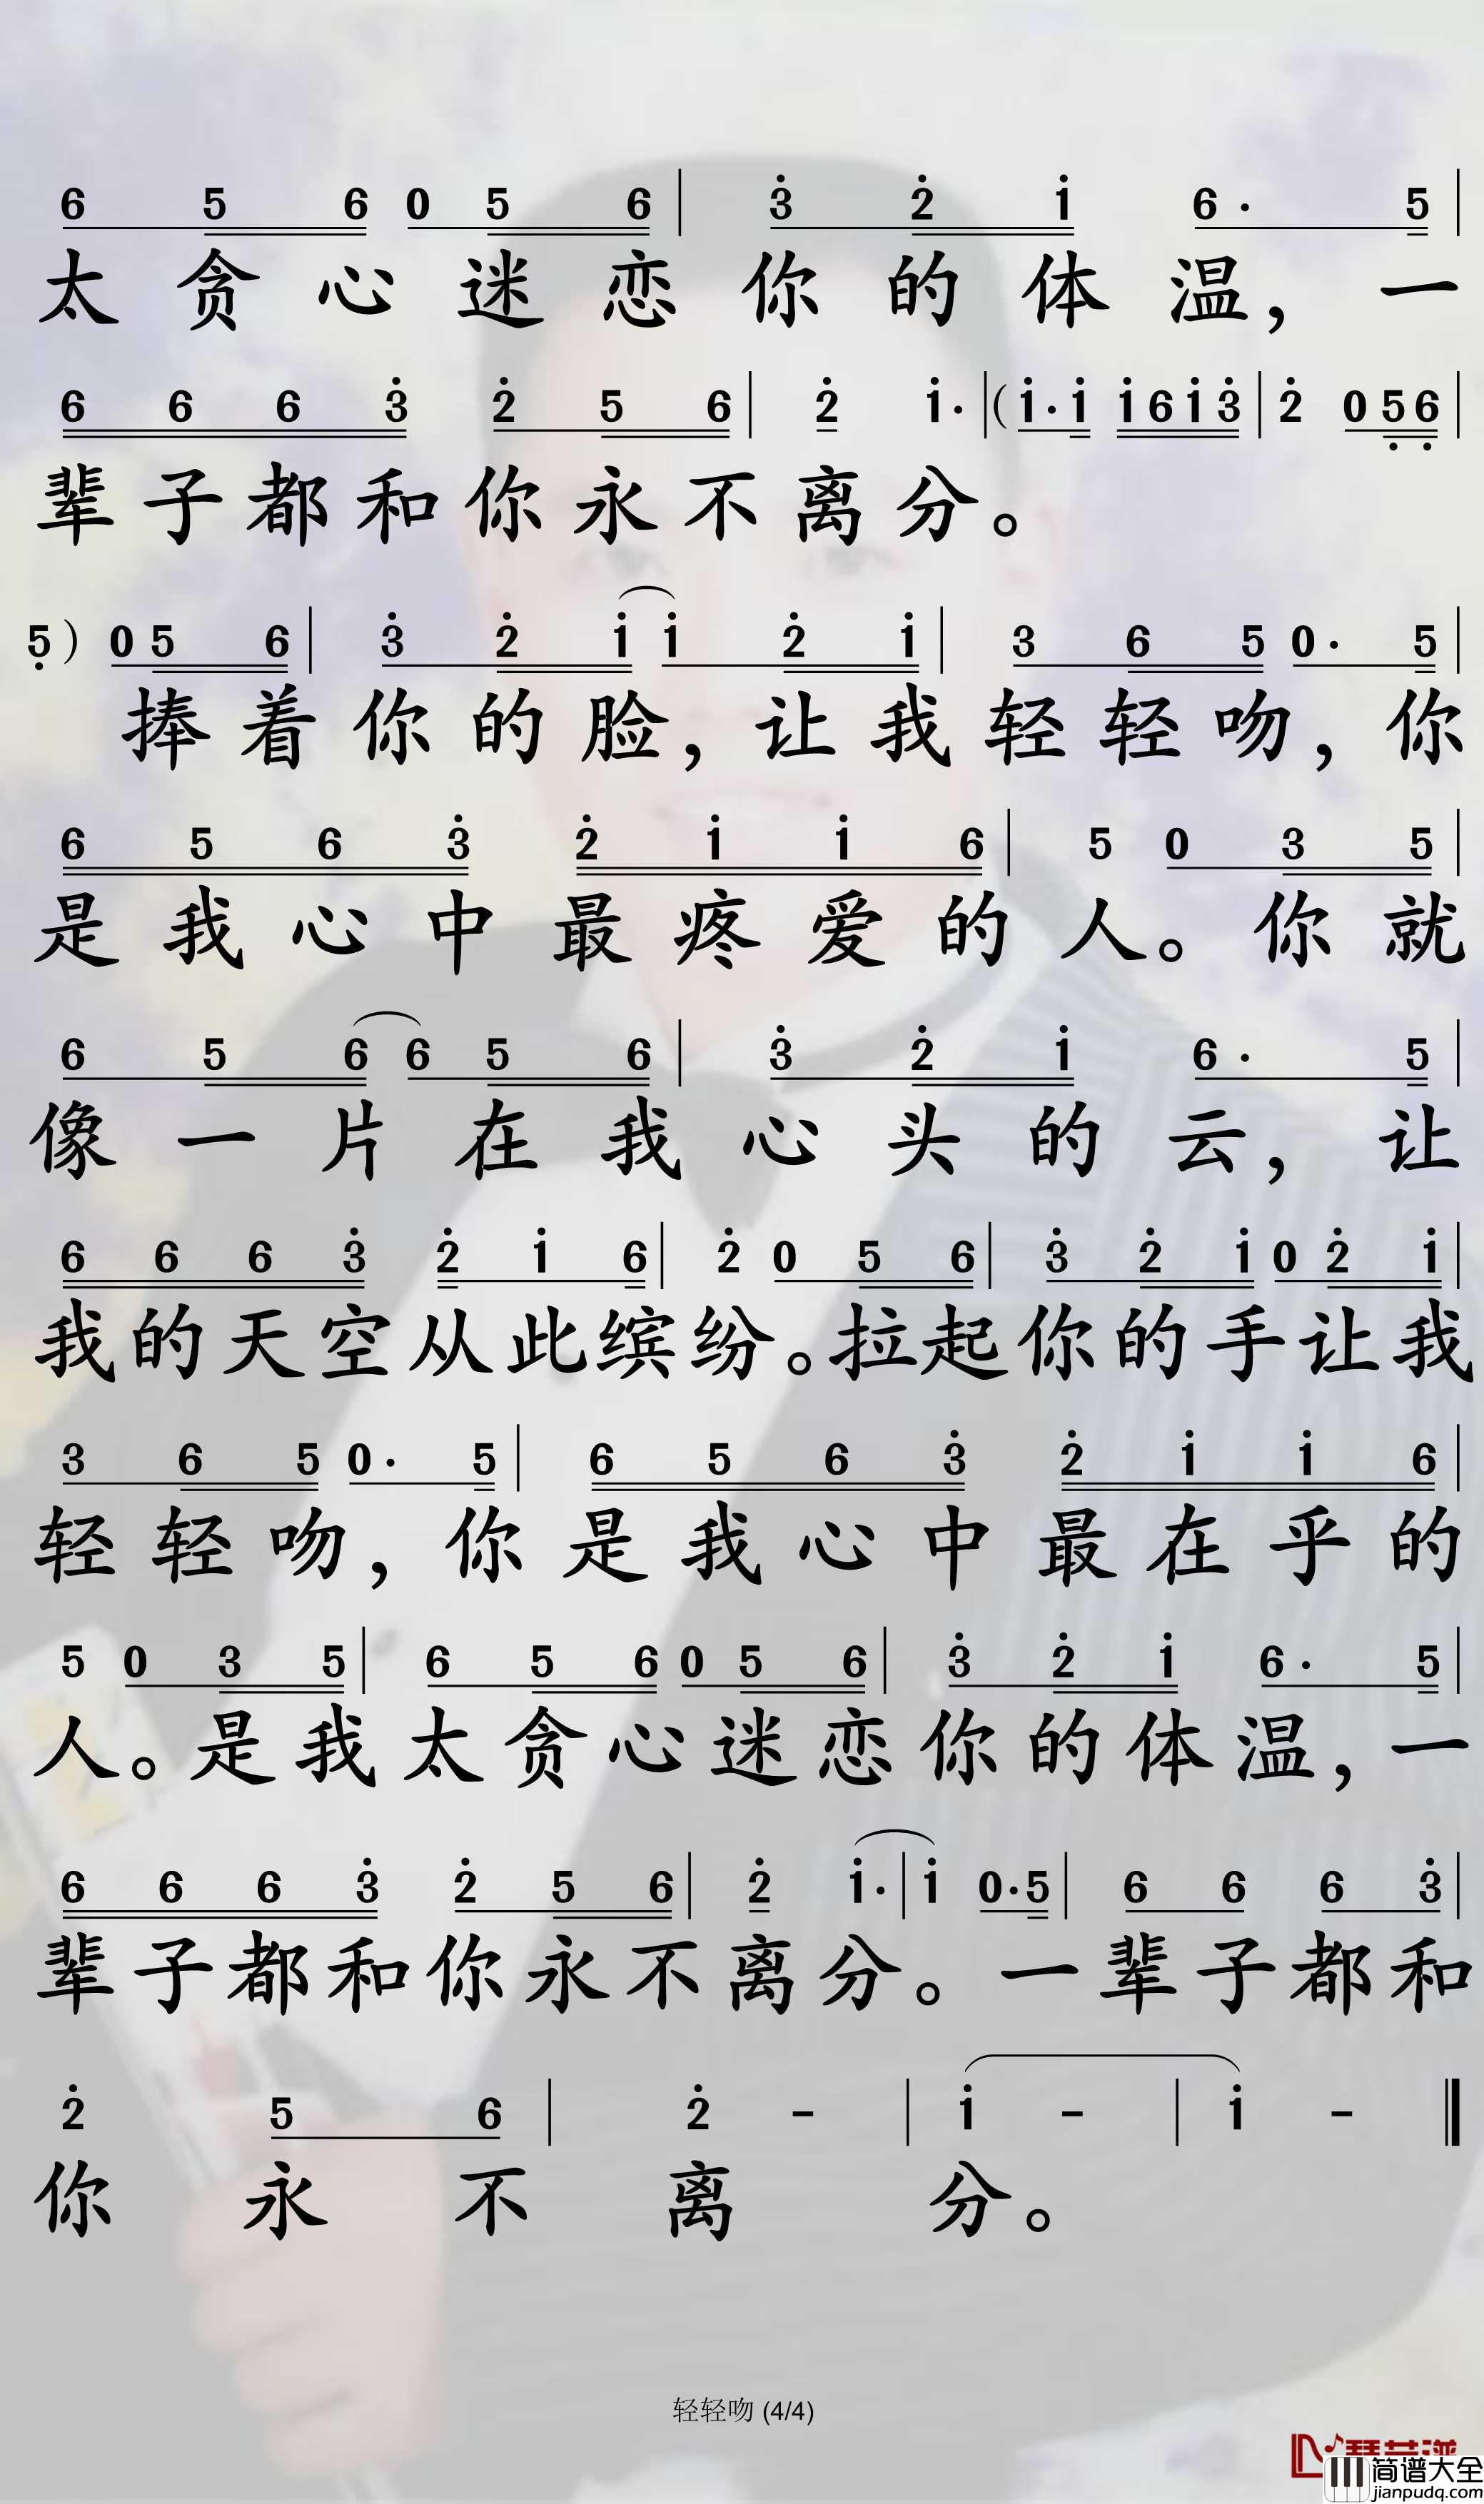 6 5 6 0 5 6 | 3̇ 2̇ 1̇ 6· 5 |
太贪心迷恋你的体温，一
6 6 6 3̇ 2̇ 5 6 | 2̇ 1̇· | (1̇·1̇ 1̇61̇3̇ | 2̇ 0 5̣6̣ |
辈子都和你永不离分。
5̣) 0 5 6 | 3̇ 2̇ 1̇ 1̇ 2̇ 1̇ | 3 6 5 0· 5 |
捧着你的脸，让我轻轻吻，你
6 5 6 3̇ 2̇ 1̇ 1̇ 6 | 5 0 3 5 |
是我心中最疼爱的人。你就
6 5 6 6 5 6 | 3̇ 2̇ 1̇ 6· 5 |
像一片在我心头的云，让
6 6 6 3̇ 2̇ 1̇ 6 | 2̇ 0 5 6 | 3̇ 2̇ 1̇ 0 2̇ 1̇ |
我的天空从此缤纷。拉起你的手让我
3 6 5 0· 5 | 6 5 6 3̇ 2̇ 1̇ 1̇ 6 |
轻轻吻，你是我心中最在乎的
5 0 3 5 | 6 5 6 0 5 6 | 3̇ 2̇ 1̇ 6· 5 |
人。是我太贪心迷恋你的体温，一
6 6 6 3̇ 2̇ 5 6 | 2̇ 1̇· | 1̇ 0·5 | 6 6 6 3̇ |
辈子都和你永不离分。一辈子都和
2̇ 5 6 | 2̇ - | 1̇ - | 1̇ - ‖
你永不离分。
轻轻吻 (4/4)
简谱大全
jianpudq.com